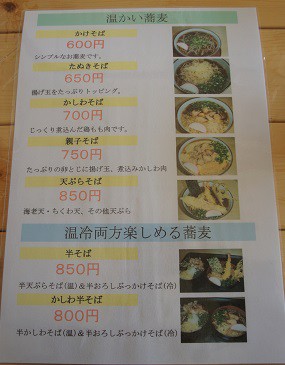 温かい蕎麦
かけそば
600円
シンプルなお蕎麦です。
たぬきそば
650円
揚げ玉をたっぷりトッピング。
かしわそば
700円
じっくり煮込んだ鶏もも肉です。
親子そば
750円
たっぷりの卵とじに揚げ玉、煮込みかしわ肉
天ぷらそば
850円
海老天・ちくわ天、その他天ぷら
温冷両方楽しめる蕎麦
半そば
850円
半天ぷらそば(温)&半おろしぶっかけそば(冷)
かしわ半そば
800円
半かしわそば(温)&半おろしぶっかけそば(冷)